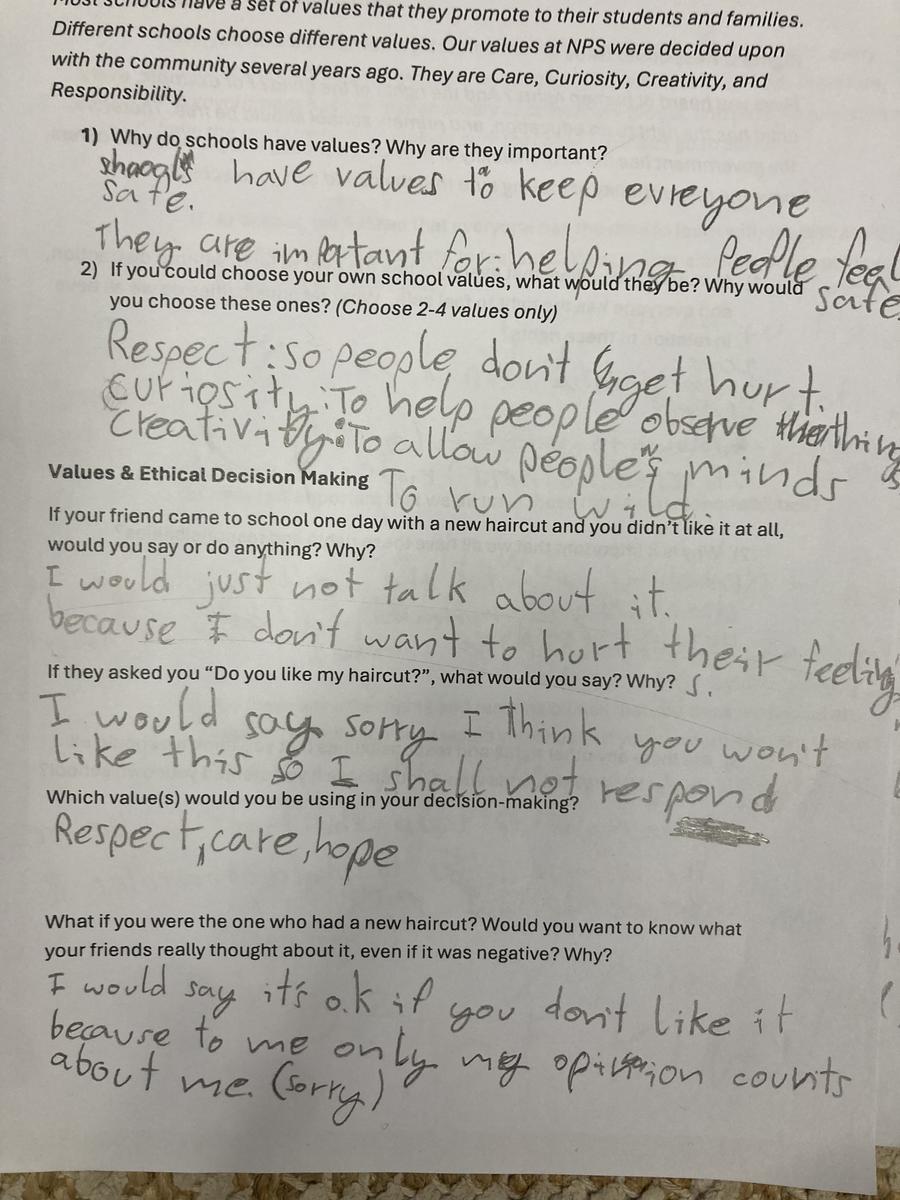 Most schools have a set of values that they promote to their students and families.
Different schools choose different values. Our values at NPS were decided upon
with the community several years ago. They are Care, Curiosity, Creativity, and
Responsibility.
1) Why do schools have values? Why are they important?
have values to keep evreyone
safe.
They are important for:helping People feel
safe.
2) If you could choose your own school values, what would they be? Why would
you choose these ones? (Choose 2-4 values only)
Respect:so people don't get hurt.
Curiosity:To help people observe things
Creativity:To allow people's minds
To run wild.
Values & Ethical Decision Making
If your friend came to school one day with a new haircut and you didn't like it at all,
would you say or do anything? Why?
I would just not talk about it.
because I don't want to hurt their feeling
s.
If they asked you “Do you like my haircut?”, what would you say? Why?
I would say sorry I think you won't
like this so I shall not respond
Which value(s) would you be using in your decision-making?
Respect, care, hope
What if you were the one who had a new haircut? Would you want to know what
your friends really thought about it, even if it was negative? Why?
I would say it's o.k if you don't like it
because to me only my opinion counts
about me. (sorry)